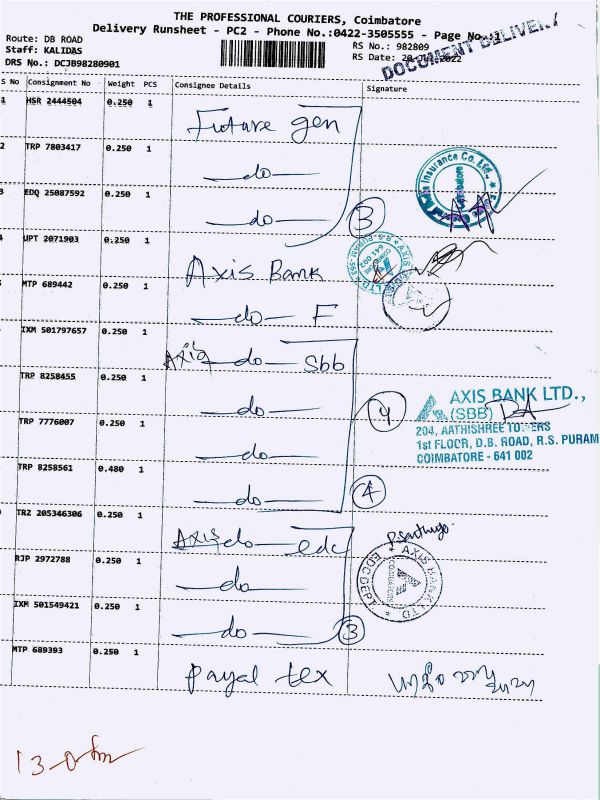 THE PROFESSIONAL COURIERS, Coimbatore
Delivery Runsheet - PC2 - Phone No.:0422-3505555 - Page No.:1
DOCUMENT DELIVERY
Route: DB ROAD
Staff: KALIDAS
DRS No.: DCJB98280901
RS No.: 982809
RS Date: 20-
2022
S No Consignment No Weight PCS Consignee Details Signature
1 HSR 2444504 0.250 1 Future gen
2 TRP 7803417 0.250 1 —do—
3 EDQ 25087592 0.250 1 —do— 3
4 UPT 2071903 0.250 1 Axis Bank
MTP 689442 0.250 1 —do— F
IXM 501797657 0.250 1 Axis —do— Sbb
TRP 8258455 0.250 1 —do— 4
AXIS BANK LTD.,
(SBB)
204, AATHISHREE TOWERS
1st FLOOR, D.B. ROAD, R.S. PURAM
COIMBATORE - 641 002
TRP 7776007 0.250 1 —do—
TRP 8258561 0.480 1 —do— 4
TRZ 205346306 0.250 1 Axis —do— edc
RJP 2972788 0.250 1 —do—
AXIS BANK LTD
IXM 501549421 0.250 1 —do— 3
MTP 689393 0.250 1 Payal tex